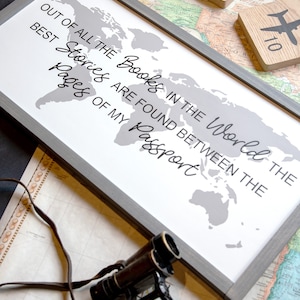 OUT OF ALL THE Books IN THE World THE
BEST Stories ARE FOUND BETWEEN THE
Pages OF MY Passport
10